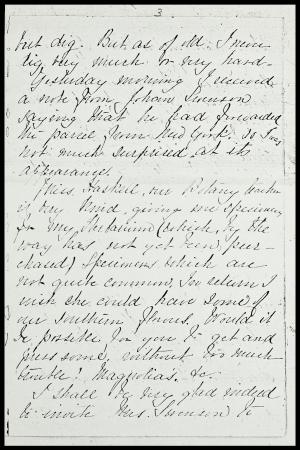 3
but dig. But as of old. I never
dig very much or very hard.
Yesterday morning I received
a note from Johann Swenson
saying that he had forwarded
the parcel from New York. So I was
not much surprised at its
appearance.
Miss Haskell, our Botany teacher
is very kind, giving me specimens
for my Herbarium (which, by the
way has not yet been pur-
chased) Specimens which are
not quite common, In return I
wish she could have some of
our Southern flowers. Would it
be possible for you to get and
press some, without too much
trouble? Magnolias. &c.
I shall be very glad indeed
to invite Mrs. Swenson to